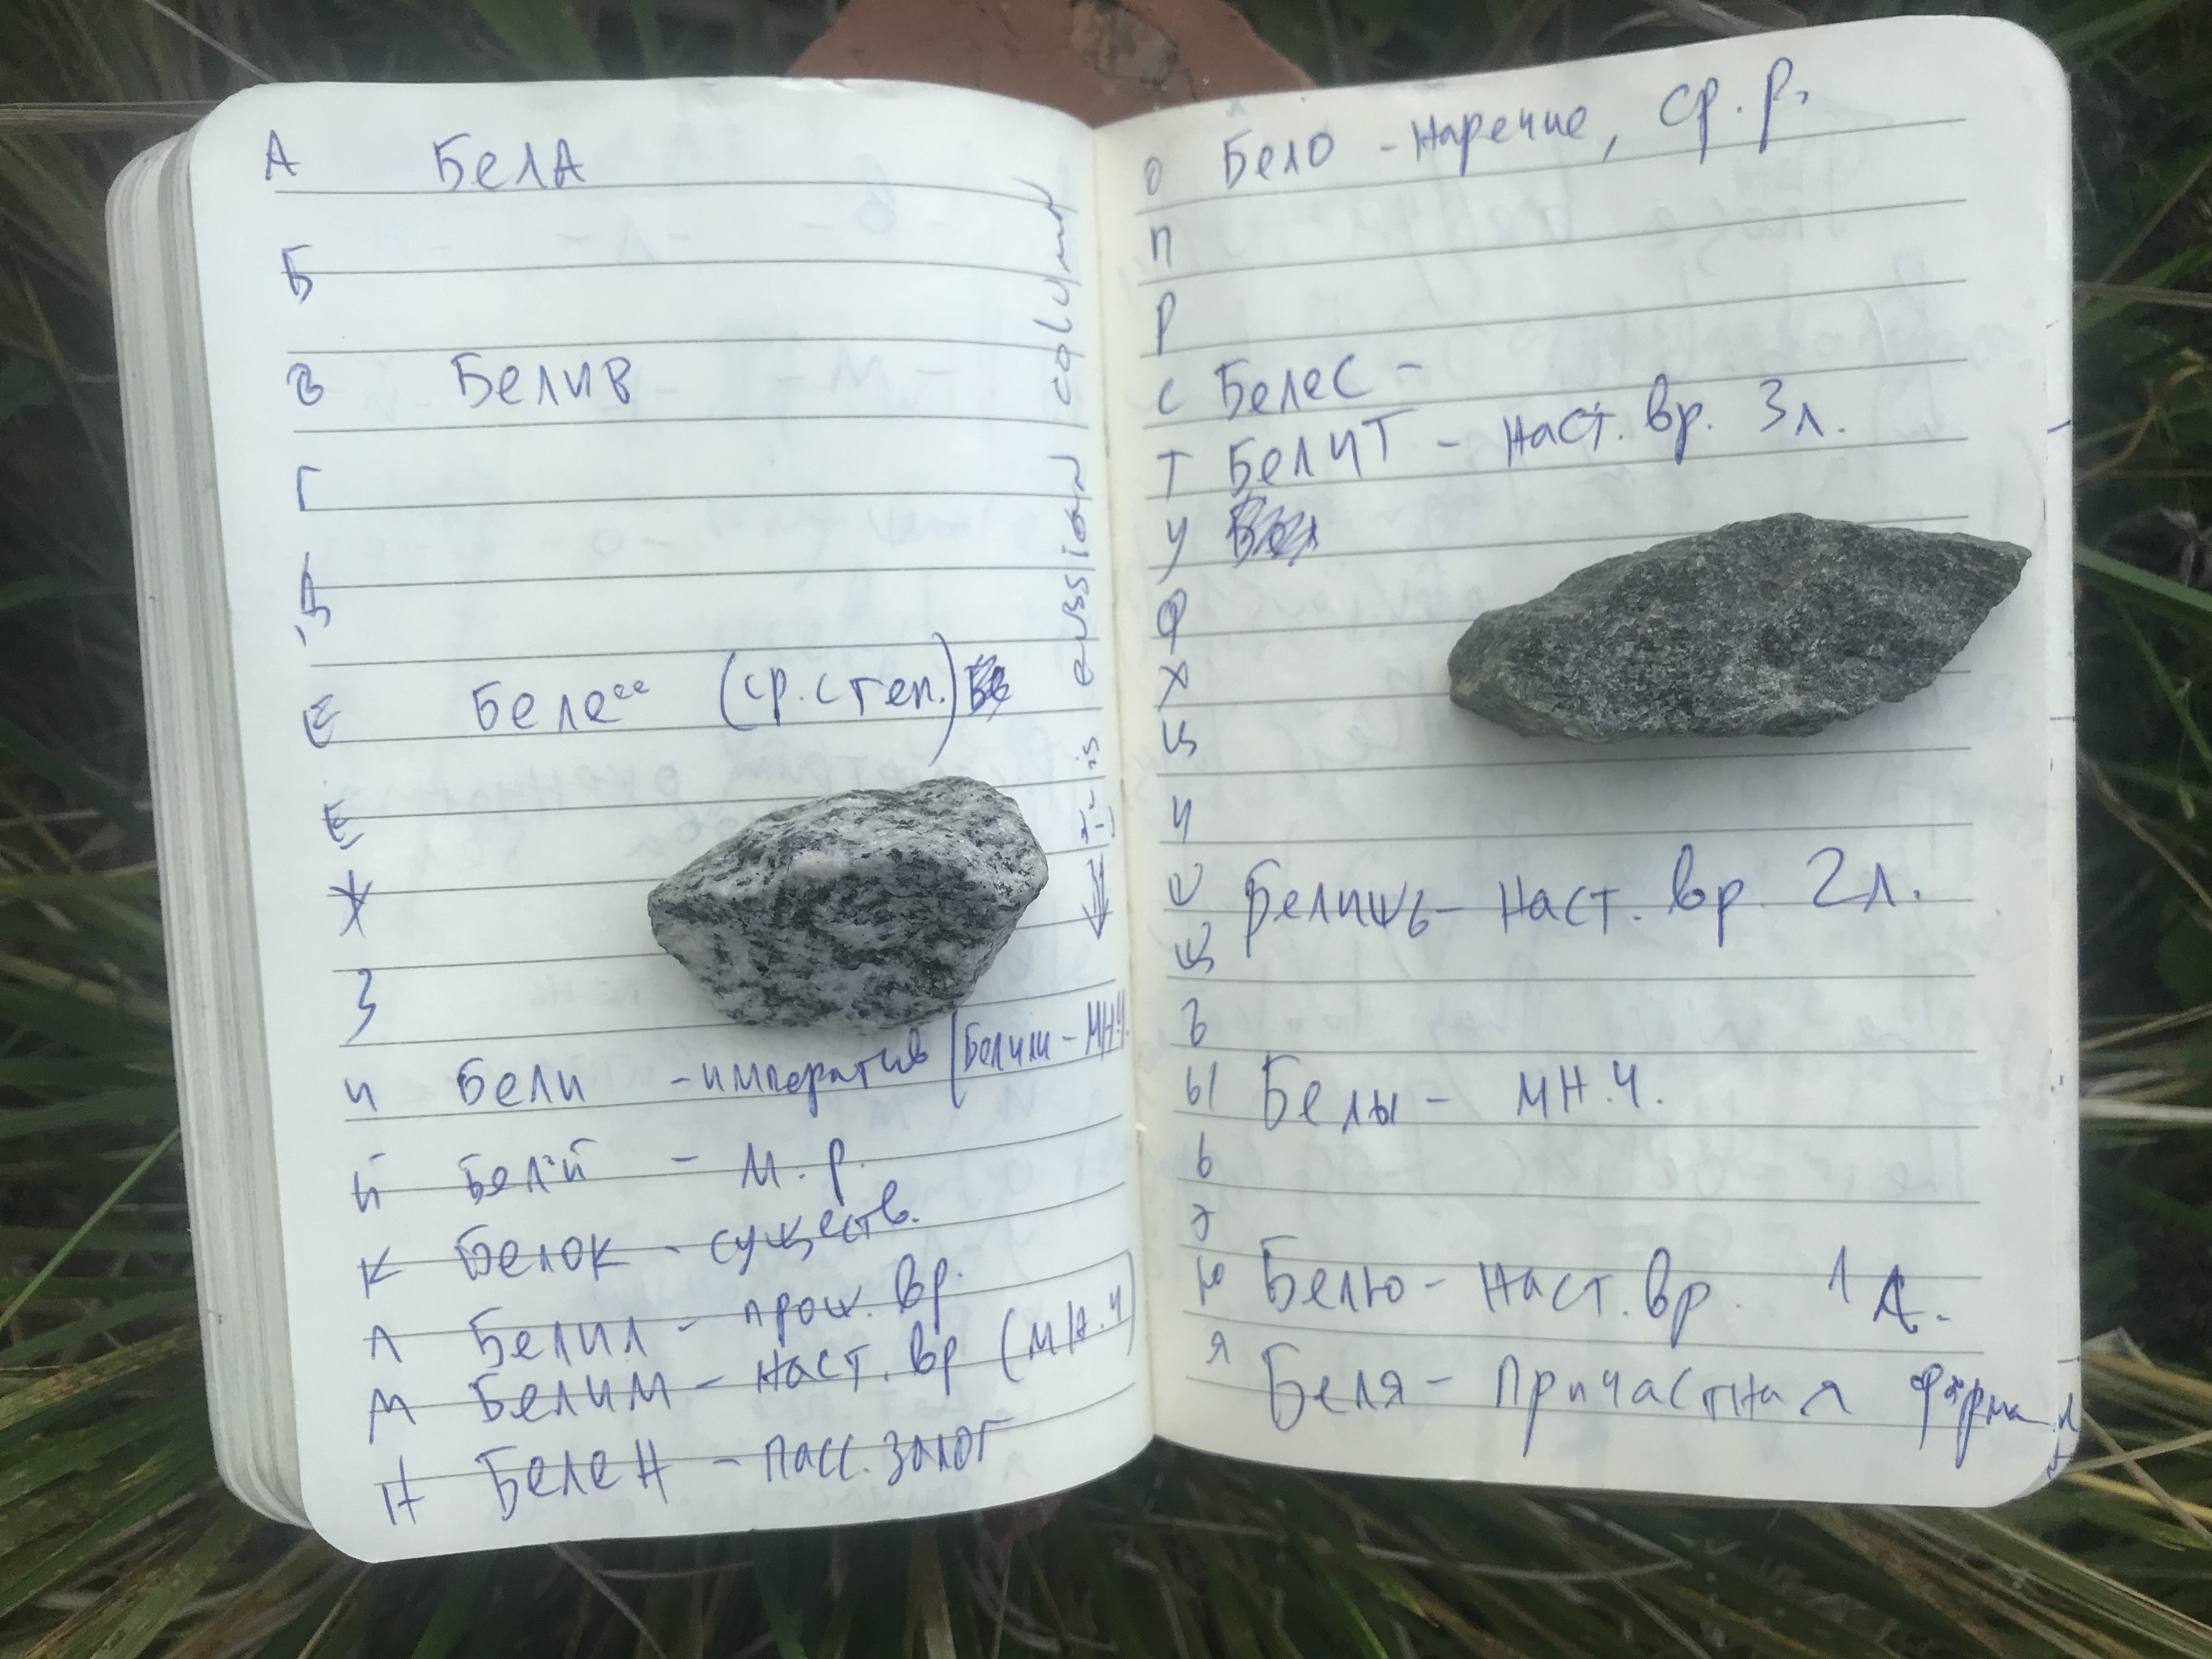 А Бела
Б
В Белив
Г
Д
Е Белее (ср. степ.)
Е
Ж
З
И Бели - императив (Белили - мн.ч.
Й Бел-й - м. р.
К Белок - существ.
Л Белил - прош. вр.
М Белим - наст. вр (мн.ч)
Н Белен - пасс. залог
column
О Бело - наречие, ср. р.
П
Р
С Белес -
Т Белит - наст. вр. 3л.
У
Ф
Х
Ц
Ч
Ш Белишь - наст. вр. 2л.
Щ
Ъ
Ы Белы - мн.ч.
Ь
Э
Ю Белю - наст. вр. 1 л.
Я Беля - причастная форма